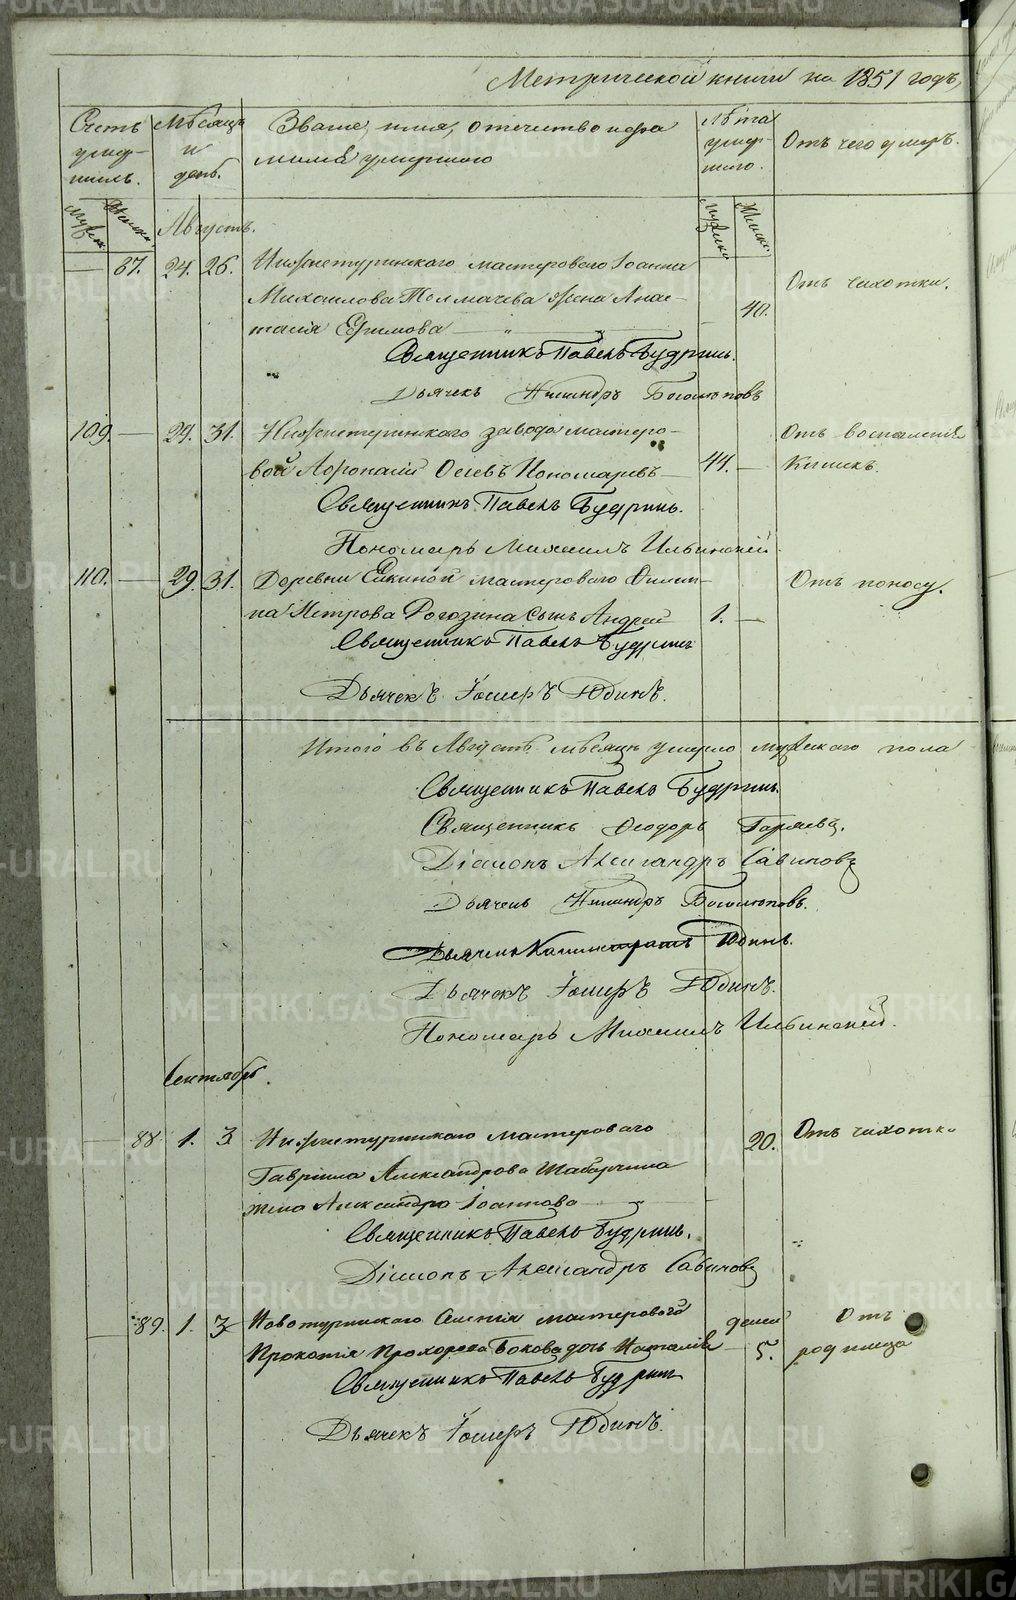 Метрической книги на 1851 годъ,
Счетъ умер-шихъ.
Мѣсяцъ и день.
Званіе, имя, отчество и фамилія умершаго
Лѣта умер-шаго.
Отъ чего умеръ.
Мужеск. Женск.
Августъ.
Мужеска Женска
— 87. 24. 26. Нижнетуринскаго мастероваго Іоанна
Михаилова Толмачева жена Анас-
тасія Ефимова — 40. Отъ чахотки.
Священникъ Павелъ Будринъ.
Дьячекъ Боголюповъ
109. — 29. 31. Нижнетуринскаго завода мастеро- Отъ воспаленія
вой Осіевъ Пономаревъ — 44. — Кишекъ.
Священникъ Павелъ Будринъ.
Пономарь Михаилъ Ильинскій
110. — 29. 31. Деревни Елкиной мастероваго Филип- Отъ поносу.
па Петрова Рогозина сынъ Андрей 1. —
Священникъ Павелъ Будринъ
Дьячекъ Іосифъ Юдинъ.
Итого въ Августѣ мѣсяцѣ умерло мужескаго пола
Священникъ Павелъ Будринъ.
Священникъ Ѳеодоръ Гаряевъ.
Діаконъ Александръ Савиновъ
Дьячекъ Боголюповъ.
Дьячекъ Калистратъ Юдинъ.
Дьячекъ Іосифъ Юдинъ.
Пономарь Михаилъ Ильинскій.
Сентябрь.
— 88 1. 3 Нижнетуринскаго мастероваго 20. Отъ чахотки
Гавріила Александрова
жена Александра Іоаннова —
Священникъ Павелъ Будринъ.
Діаконъ Александръ Савиновъ
— 89. 1. 3 Новотуринскаго Селенія мастероваго дней Отъ
Прокопія Прохорова Бокова дочь Наталія — 5. родимца
Священникъ Павелъ Будринъ
Дьячекъ Іосифъ Юдинъ.
METRIKI.GASO-URAL.RU